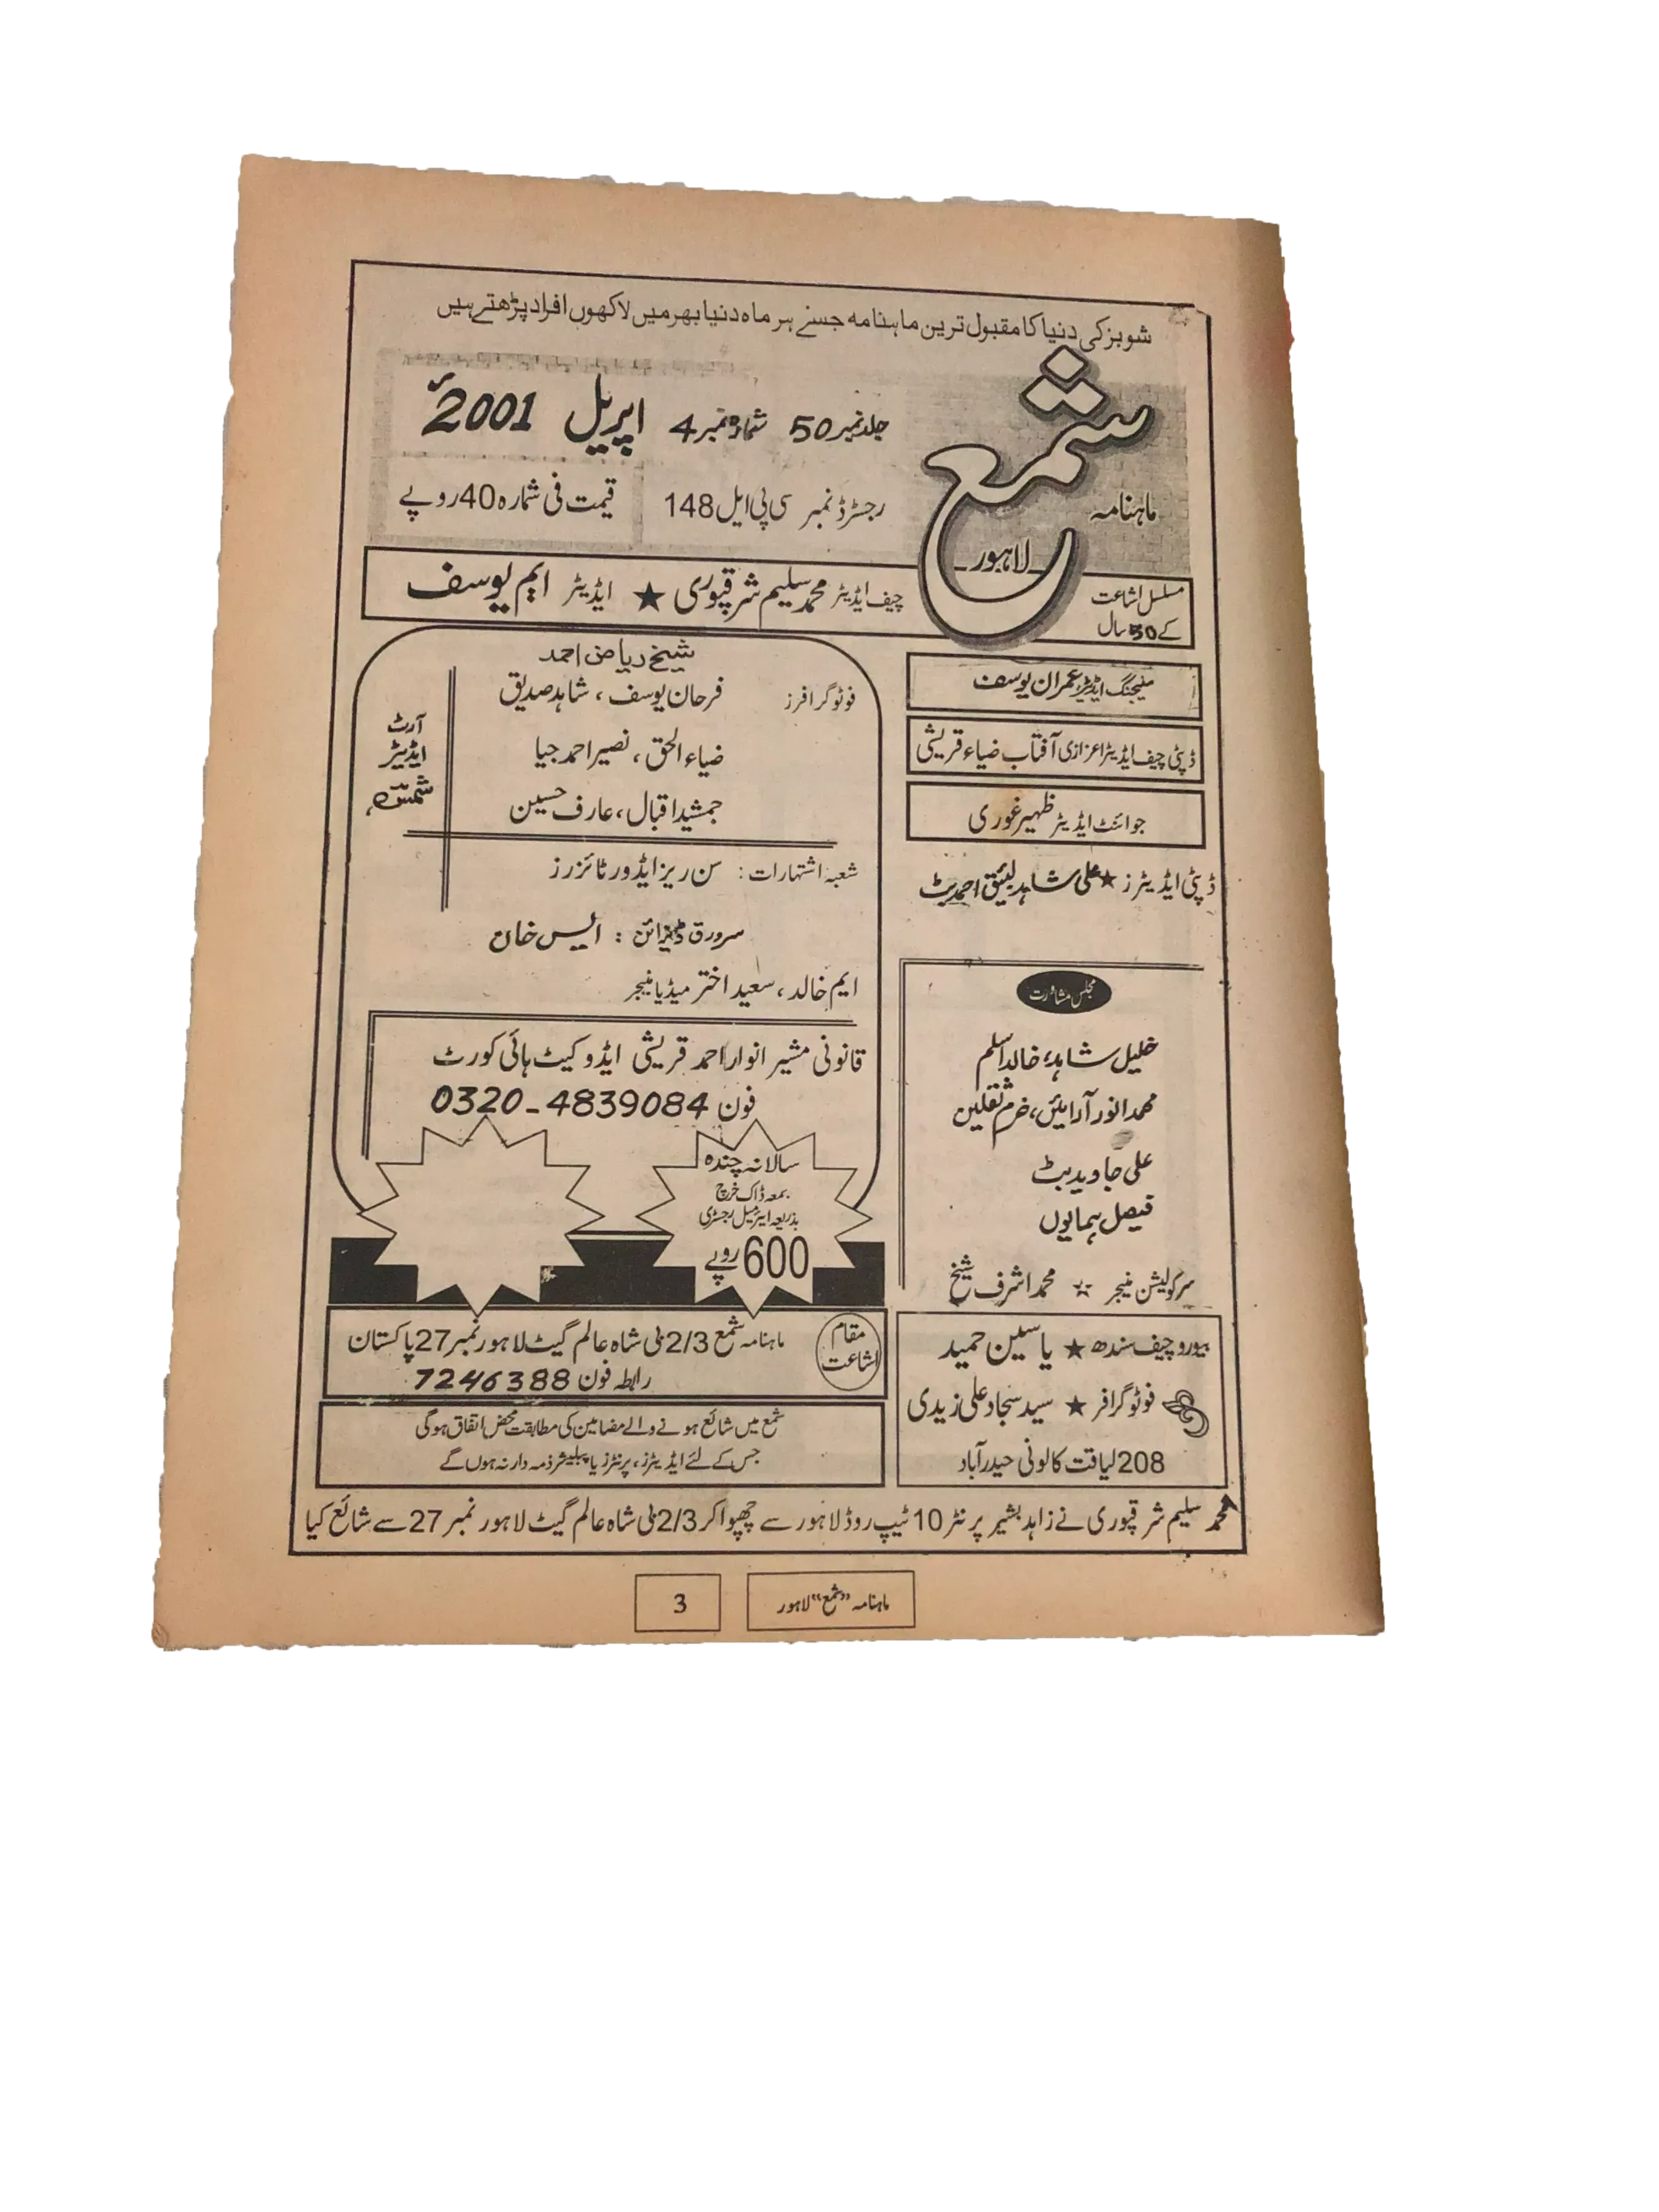 شوبز کی دنیا کا مقبول ترین ماہنامہ جسے ہر ماہ دنیا بھر میں لاکھوں افراد پڑھتے ہیں
ماہنامہ
شمع
لاہور
جلد نمبر 50 شمارہ نمبر 4 اپریل 2001ء
رجسٹرڈ نمبر سی پی ایل 148
قیمت فی شمارہ 40 روپے
مسلسل اشاعت
کے 50 سال
چیف ایڈیٹر محمد سلیم شرقپوری ★ ایڈیٹر ایم یوسف
منیجنگ ایڈیٹر عمران یوسف
ڈپٹی چیف ایڈیٹر اعزازی آفتاب ضیاء قریشی
جوائنٹ ایڈیٹر ظہیر غوری
ڈپٹی ایڈیٹرز ★ علی شاہد لئیق احمد بٹ
مجلس مشاورت
خلیل شاہد، خالد اسلم
محمد انور آرائیں، خرم ثقلین
علی جاوید بٹ
فیصل ہمایوں
سرکولیشن منیجر ☆ محمد اشرف شیخ
بیورو چیف سندھ ★ یاسین حمید
فوٹو گرافر ★ سید سجاد علی زیدی
208 لیاقت کالونی حیدرآباد
شیخ ریاض احمد
فوٹو گرافرز فرحان یوسف، شاہد صدیق
ضیاء الحق، نصیر احمد جیا
جمشید اقبال، عارف حسین
آرٹ
ایڈیٹر
شعبہ اشتہارات: سن ریز ایڈورٹائزرز
سرورق ڈیزائن: ایس خان
ایم خالد، سعید اختر میڈیا منیجر
قانونی مشیر انوار احمد قریشی ایڈوکیٹ ہائی کورٹ
فون 0320-4839084
سالانہ چندہ
بمعہ ڈاک خرچ
بذریعہ ایئرمیل رجسٹری
600 روپے
مقام
اشاعت
ماہنامہ شمع 2/3 بی شاہ عالم گیٹ لاہور نمبر 27 پاکستان
رابطہ فون 7246388
شمع میں شائع ہونے والے مضامین کی مطابقت محض اتفاق ہوگی
جس کے لئے ایڈیٹرز، پرنٹرز یا پبلیشر ذمہ دار نہ ہوں گے
محمد سلیم شرقپوری نے زاہد بشیر پرنٹر 10 ٹیپ روڈ لاہور سے چھپوا کر 2/3 بی شاہ عالم گیٹ لاہور نمبر 27 سے شائع کیا
ماہنامہ "شمع" لاہور
3